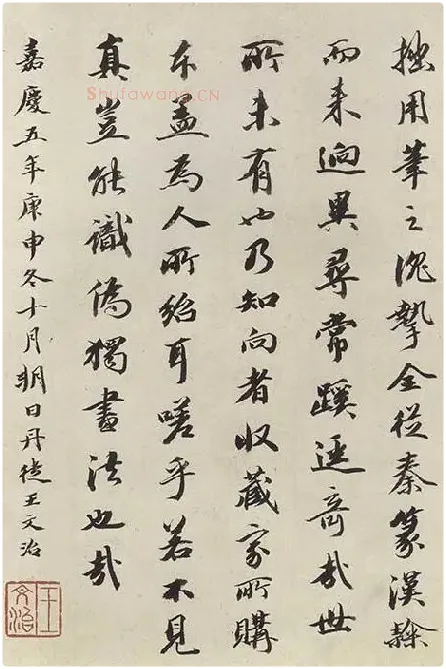 拙用筆之沈摯全從秦篆漢隸
而来迥異尋常蹊逕奇哉世
所未有也乃知向者收藏家所購
本蓋為人所紿耳嗟乎若不見
真豈能識偽獨畫法也哉
嘉慶五年庚申冬十月朔日丹徒王文治
王文治
Shufawang.CN